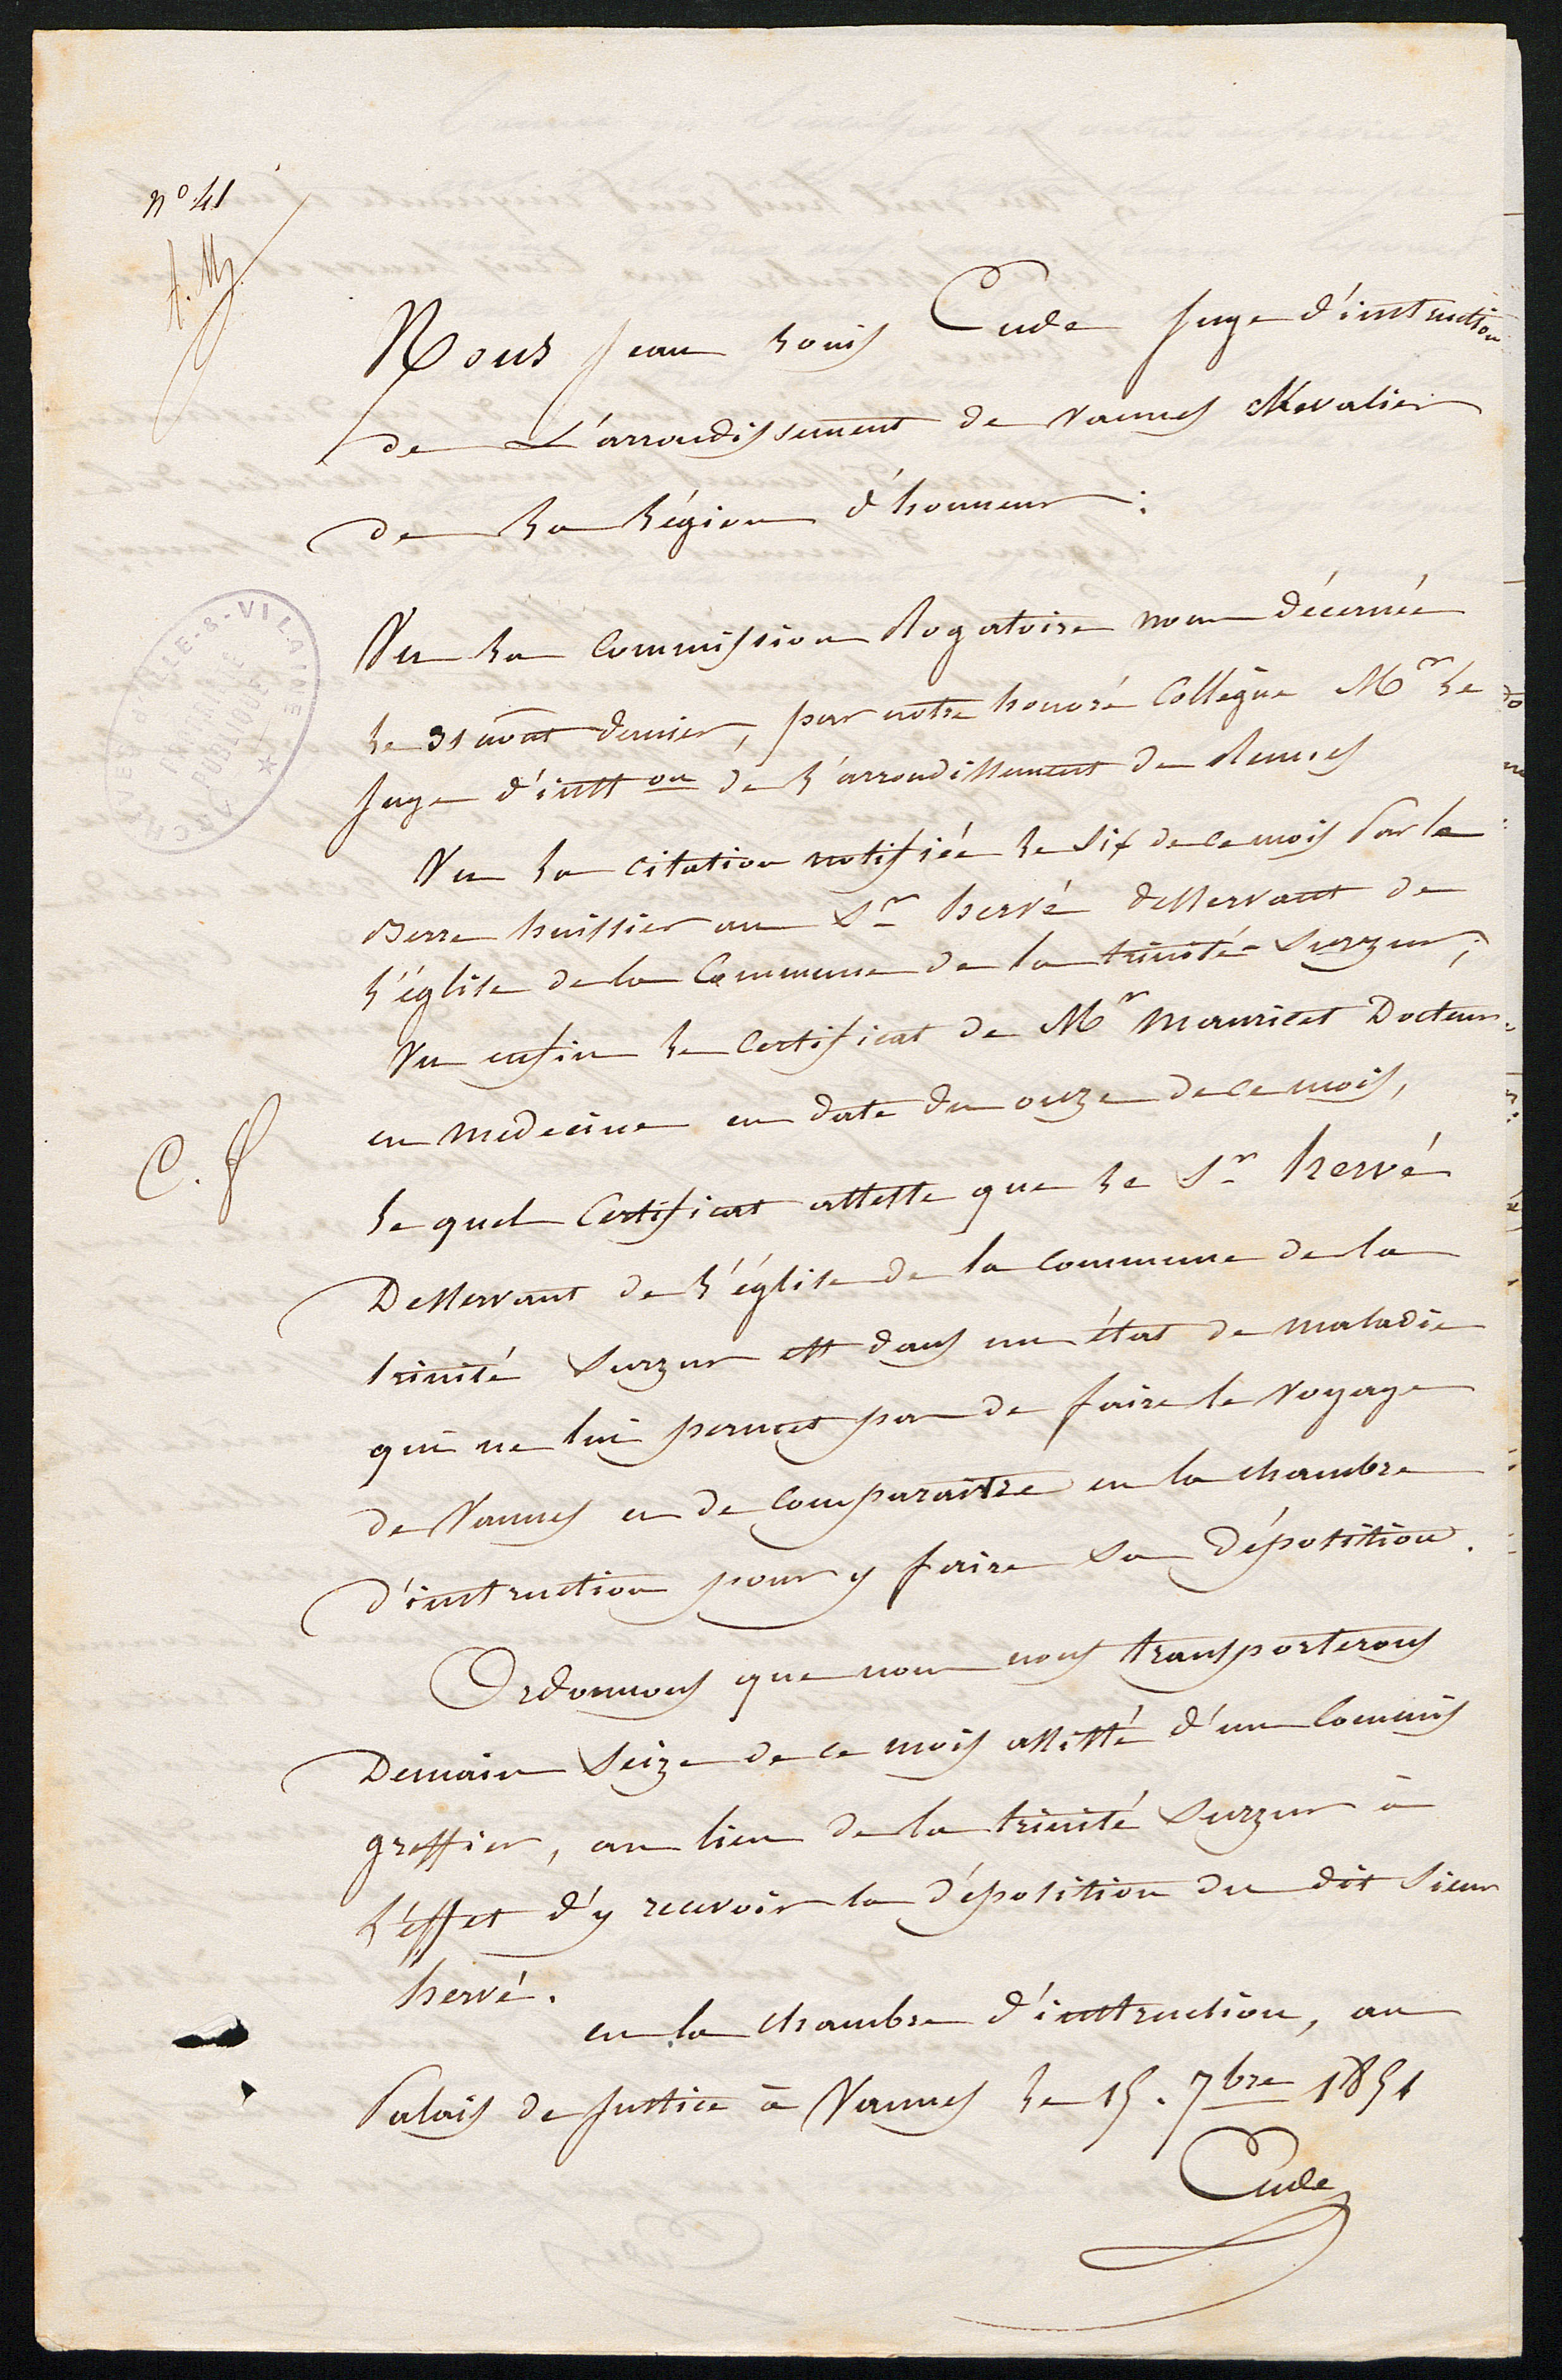 n° 41
Nous Jean Louis Cude Juge d'instruction
de L'arrondissement de Vannes Chevalier
de La Légion d'honneur :
Vu La Commission Rogatoire nous décernée
Le 31 août dernier, par notre honoré Collègue Mr Le
Juge d'instt on de L'arrondissement de Rennes
Vu La citation notifiée Le Six de ce mois Par le
Berre huissier au Sr hervé desservant de
L'église de la Commune de la trinité-Surzur ;
Vu enfin Le Certificat de Mr Mauricet Docteur
en médecine en date du onze de ce mois,
Le quel Certificat atteste que Le Sr hervé
Desservant de L'église de la commune de la
trinité Surzur est dans un état de maladie
qui ne lui permet pas de faire le Voyage
de Vannes en de Comparaitre en la chambre
d'instruction pour y faire sa déposition.
Ordonnons que nous nous transporterons
Demain Seize de ce mois assisté d'un Commis
greffier, au lieu de la trinité Surzur à
L'éffet d'y recevoir la déposition du dit Sieur
hervé.
en la chambre d'instruction, au
Palais de Justice à Vannes Le 15. 7bre 1851
Cude
C. P
ARCHIVES D'ILLE-&-VILAINE
PROPRIÉTÉ
PUBLIQUE